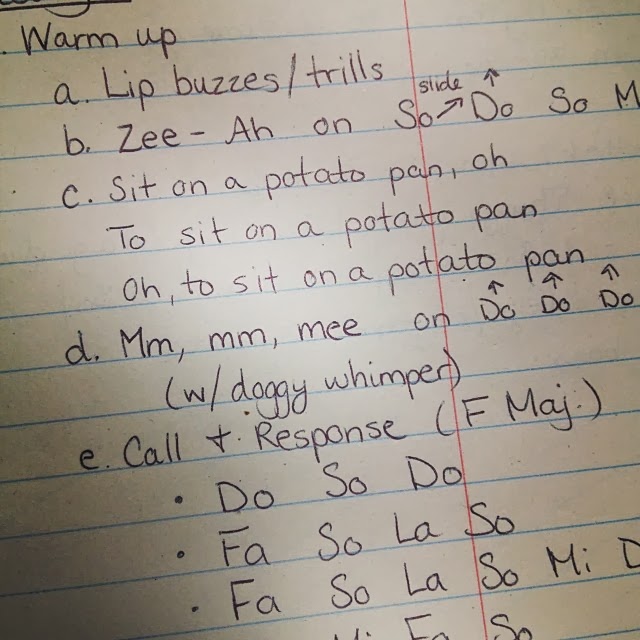 . Warm up
a. Lip buzzes/trills
slide ↑
b. Zee - Ah on So↗Do So M
c. Sit on a potato pan, oh
To sit on a potato pan
Oh, to sit on a potato pan
↑ ↑ ↑
d. Mm, mm, mee on Do Do Do
(w/ doggy whimper)
e. Call +. Response (F Maj.)
• Do So Do
• Fa So La So
• Fa So La So Mi D
Mi Fa So